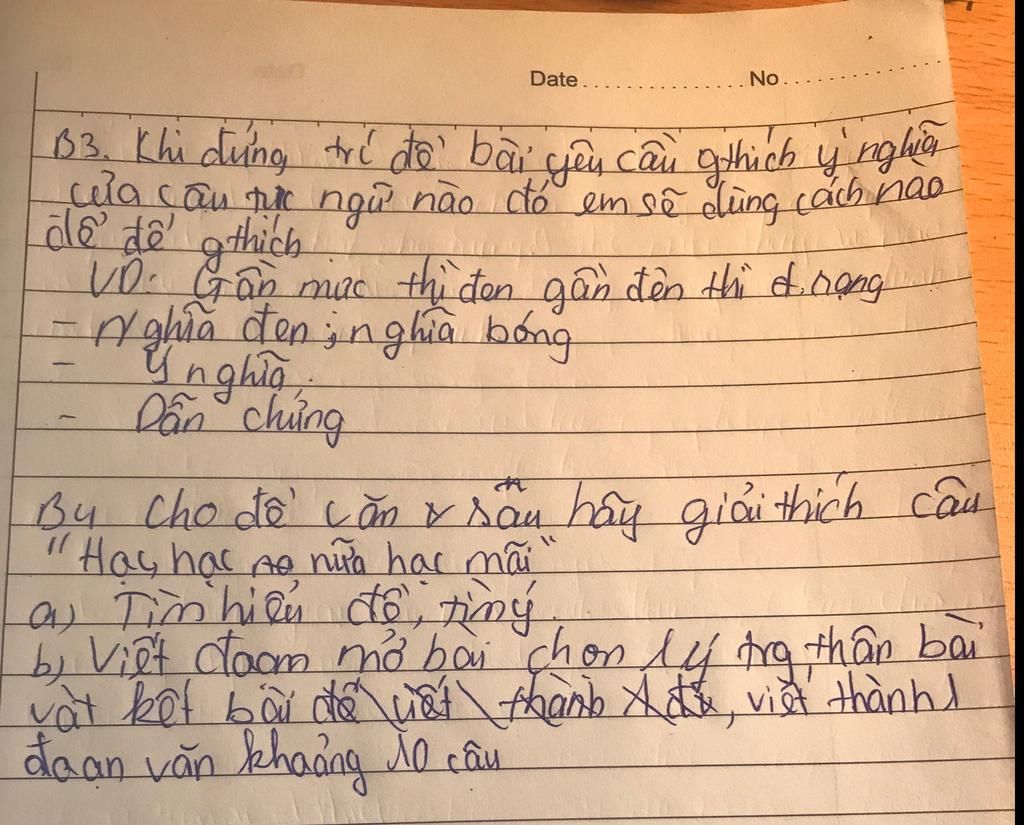 Date............... No...............
B3. Khi đứng trc đề bài yêu cầu gthích ý nghĩa
của câu tục ngữ nào đó em sẽ dùng cách nào
để để gthích
VD: Gần mực thì đen gần đèn thì rạng
- Nghĩa đen; nghĩa bóng
- Ý nghĩa.
- Dẫn chứng
B4 Cho đề văn sau hãy giải thích câu
"Học, học nữa học mãi"
a) Tìm hiểu đề, tìm ý.
b) Viết đoạn mở bài chọn 1 ý trg thân bài
vàt kết bài để viết thành, viết thành 1
đoạn văn khoảng 10 câu